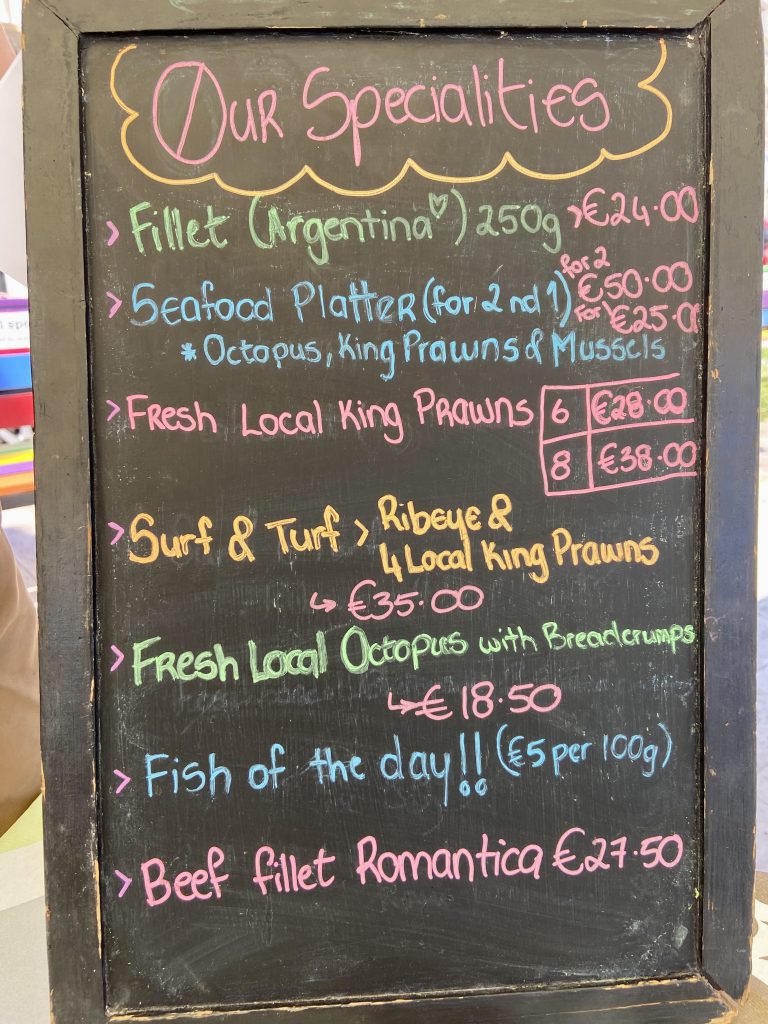 Our Specialities
> Fillet (Argentina♡) 250g >€24.00
> Seafood Platter (for 2 nd 1) for 2 €50.00
For 1 €25.0
* Octopus, King Prawns & Mussels
> Fresh Local King Prawns 6 €28.00
8 €38.00
> Surf & Turf > Ribeye &
4 Local King Prawns
↳ €35.00
> Fresh Local Octopus with Breadcrumps
↳ €18.50
> Fish of the day!! (€5 per 100g)
> Beef fillet Romantica €27.50